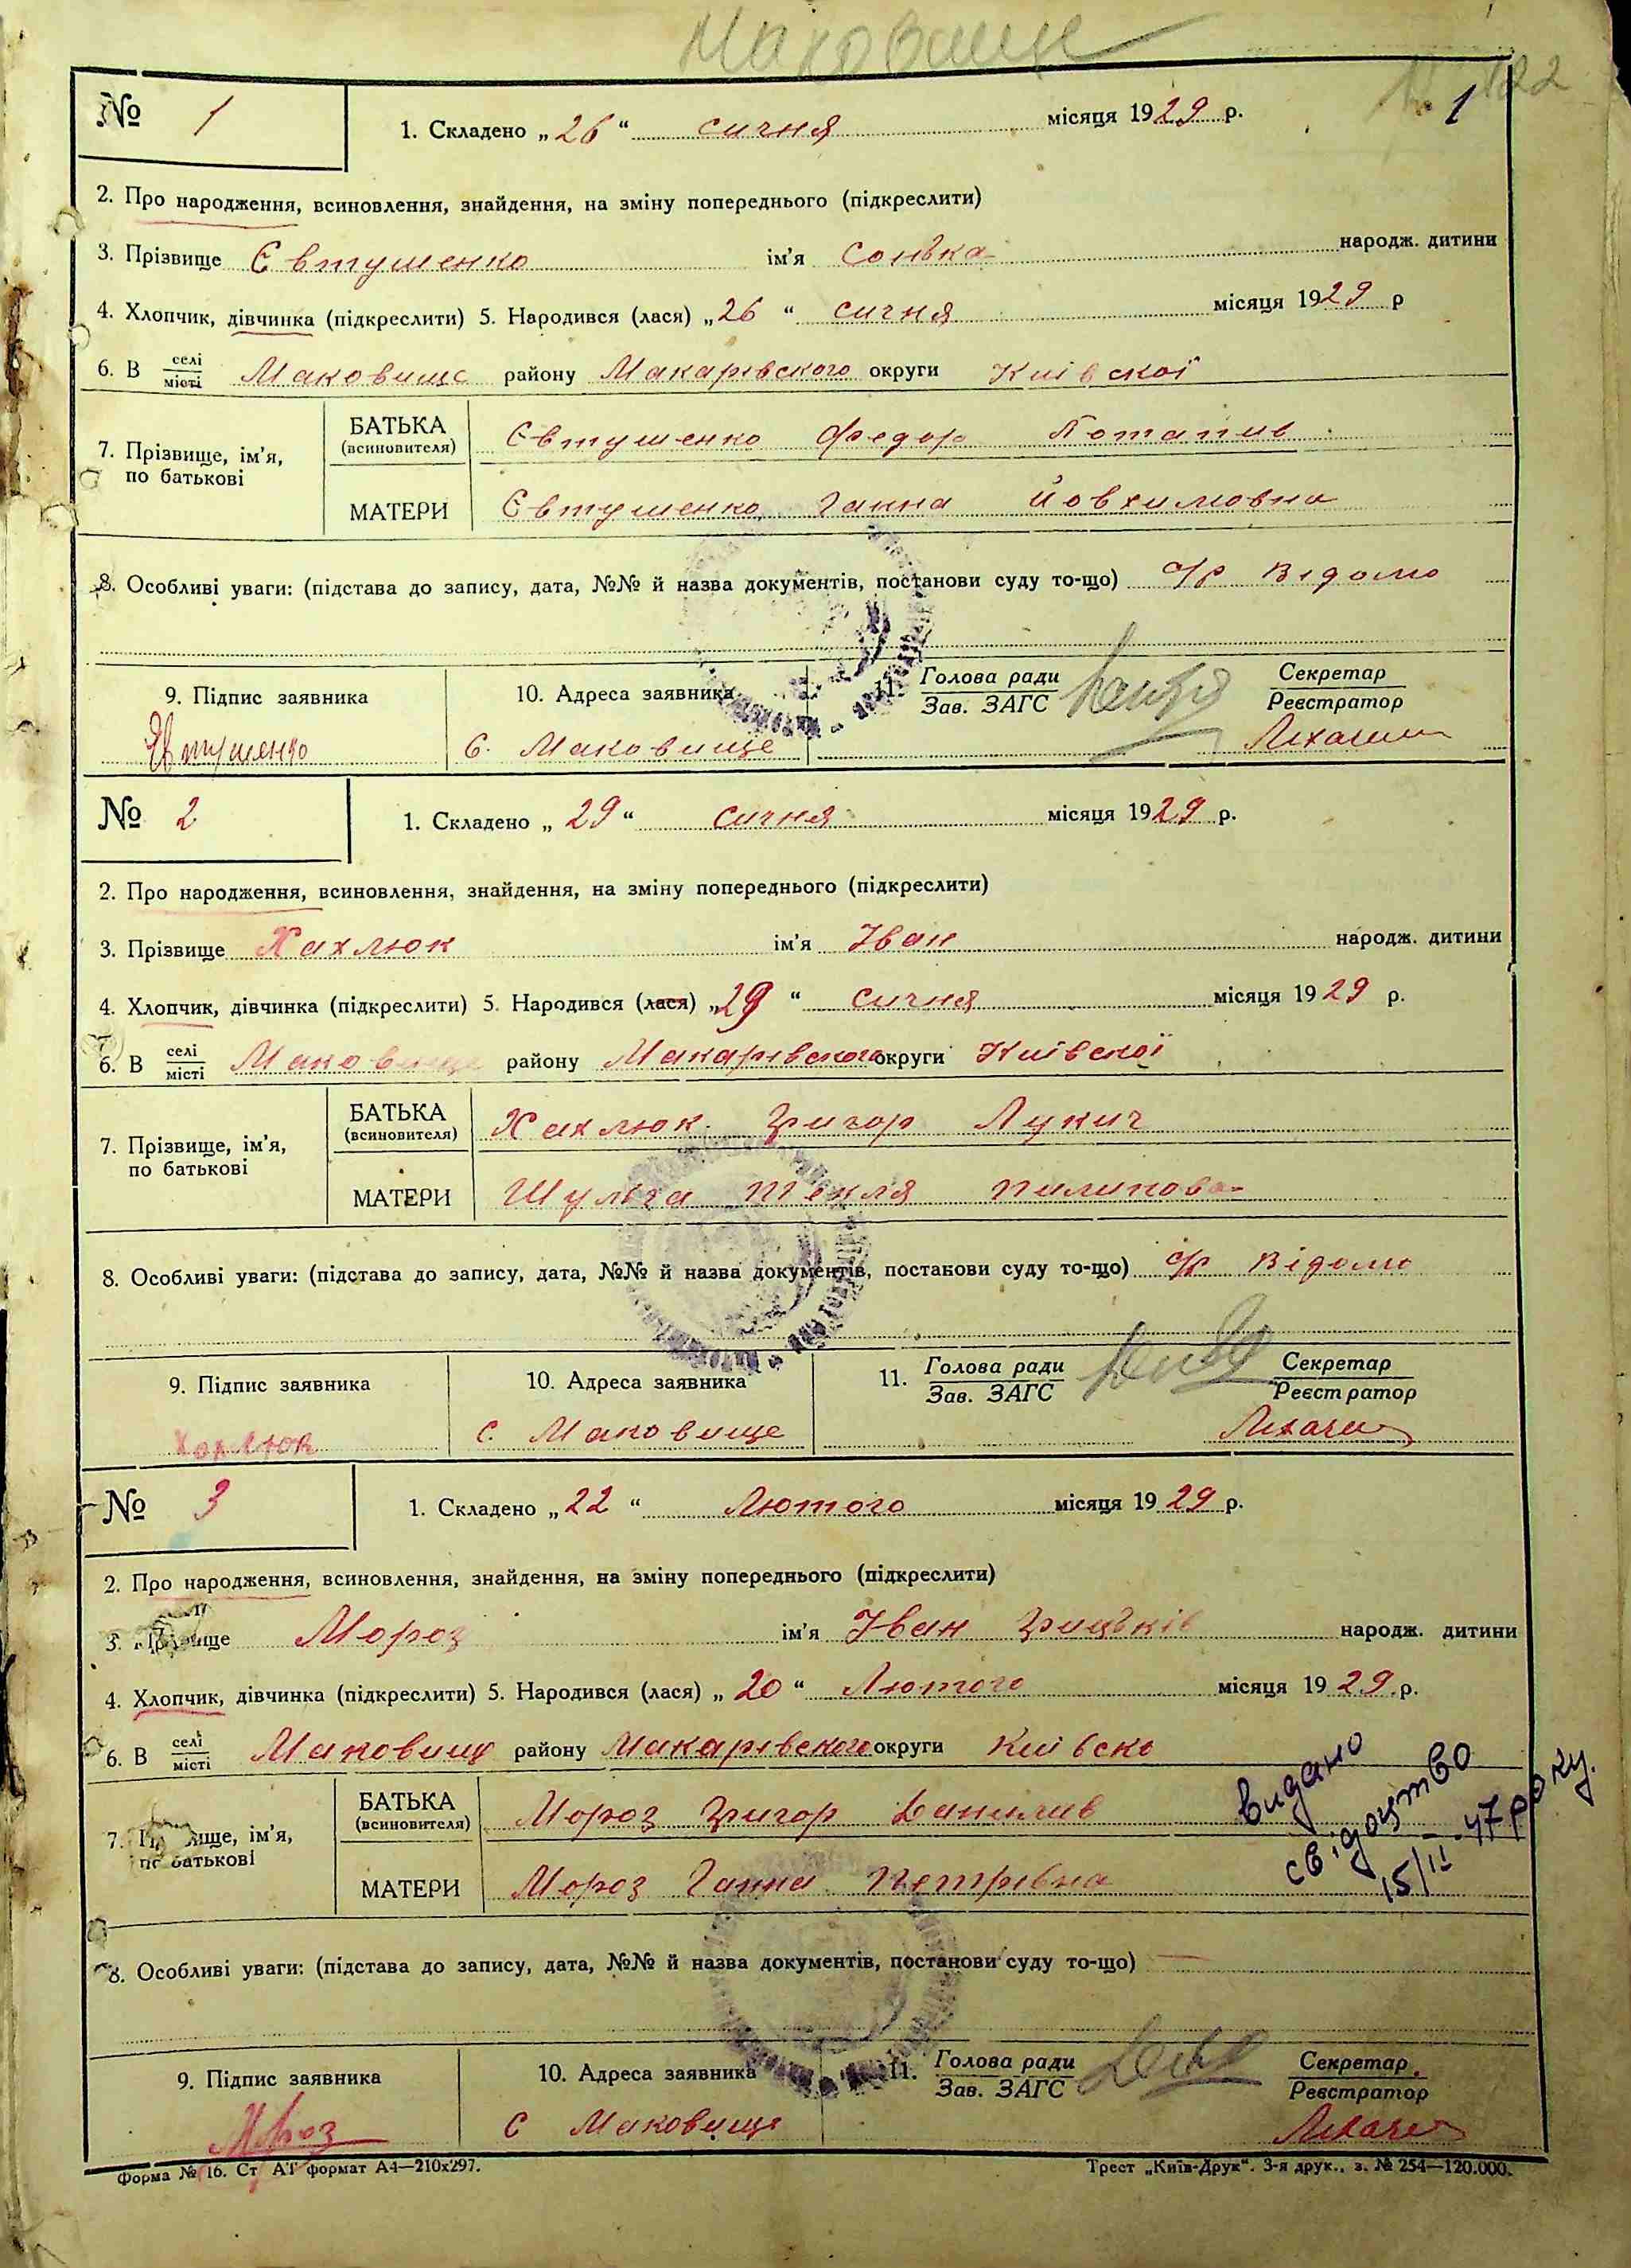 Маковище
№ 1
1. Складено „26“ сичня місяця 1929 р.
1
2. Про народження, всиновлення, знайдення, на зміну попереднього (підкреслити)
3. Прізвище Євтушенко ім'я Сонька народж. дитини
4. Хлопчик, дівчинка (підкреслити) 5. Народився (лася) „26“ сичня місяця 1929 р
6. В селі місті Маковище району Макарівского округи Київскої
7. Прізвище, ім'я, по батькові
БАТЬКА (всиновителя) Євтушенко Федор Потапив
МАТЕРИ Євтушенко Ганна Йовхимовна
8. Особливі уваги: (підстава до запису, дата, №№ й назва документів, постанови суду то-що) с/р Відомо
9. Підпис заявника
10. Адреса заявника
11. Голова ради Зав. ЗАГС
Секретар Реєстратор
Євтушенко
с. Маковище
№ 2
1. Складено „29“ сичня місяця 1929 р.
2. Про народження, всиновлення, знайдення, на зміну попереднього (підкреслити)
3. Прізвище Хахлюк ім'я Іван народж. дитини
4. Хлопчик, дівчинка (підкреслити) 5. Народився (лася) „29“ сичня місяця 1929 р.
6. В селі місті Маковище району Макарівского округи Київскої
7. Прізвище, ім'я, по батькові
БАТЬКА (всиновителя) Хахлюк Григор Лукич
МАТЕРИ Шульга Текля Пилипова
8. Особливі уваги: (підстава до запису, дата, №№ й назва документів, постанови суду то-що) с/р Відомо
9. Підпис заявника
10. Адреса заявника
11. Голова ради Зав. ЗАГС
Секретар Реєстратор
Хахлюк
с. Маковище
№ 3
1. Складено „22“ Лютого місяця 1929 р.
2. Про народження, всиновлення, знайдення, на зміну попереднього (підкреслити)
3. Прізвище Мороз ім'я Іван Грицьків народж. дитини
4. Хлопчик, дівчинка (підкреслити) 5. Народився (лася) „20“ Лютого місяця 1929 р.
6. В селі місті Маковищ району Макарівского округи Київско
7. Прізвище, ім'я, по батькові
БАТЬКА (всиновителя) Мороз Григор Данилив
МАТЕРИ Мороз Ганна Петрівна
видано
свідоцтво
15/II - 47 року.
8. Особливі уваги: (підстава до запису, дата, №№ й назва документів, постанови суду то-що)
9. Підпис заявника
10. Адреса заявника
11. Голова ради Зав. ЗАГС
Секретар Реєстратор
Мороз
с Маковище
Форма № 16. Ст АТ формат А4—210х297.
Трест „Київ-Друк“. 3-я друк., з. № 254—120.000.